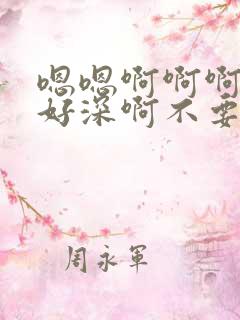 嗯嗯啊啊啊
好深啊不要
周永軍